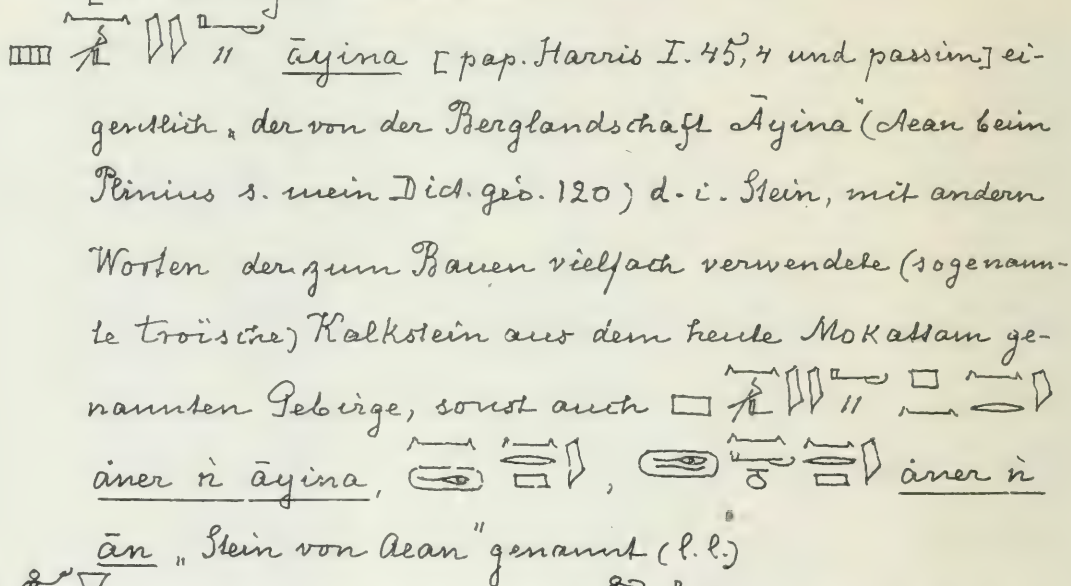 āyina [pap. Harris I. 45,4 und passim] ei-
gentlich „der von der Berglandschaft Āyina" (Aean beim
Plinius s. mein Dict. géo. 120) d. i. Stein, mit andern
Worten der zum Bauen vielfach verwendete (sogenann-
te troïsche) Kalkstein aus dem heute Mokattam ge-
nannten Gebirge, sonst auch
ȧner ṅ āyina, , ȧner ṅ
ān „Stein von Aean" genannt (l. l.)